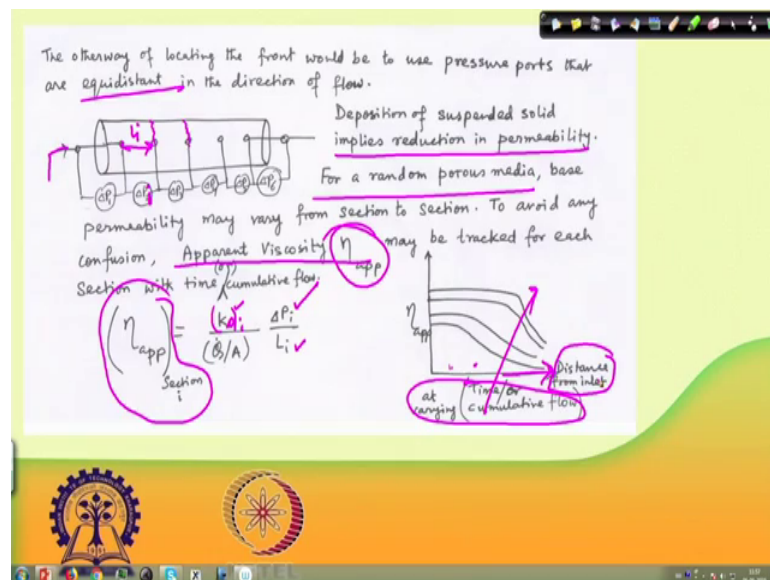 The otherway of locating the front would be to use pressure ports that
are equidistant in the direction of flow.
Li
ΔP1 ΔP2
ΔP6
Deposition of suspended solid
implies reduction in permeability.
For a random porous media, base
permeability may vary from section to section. To avoid any
confusion, Apparent Viscosity ηapp may be tracked for each
Section with time (or) cumulative flow.
(ηapp)Section i = (k0)i / (Q/A) ΔPi / Li
ηapp
Distance from inlet
at varying (Time/or cumulative flow)
11:57